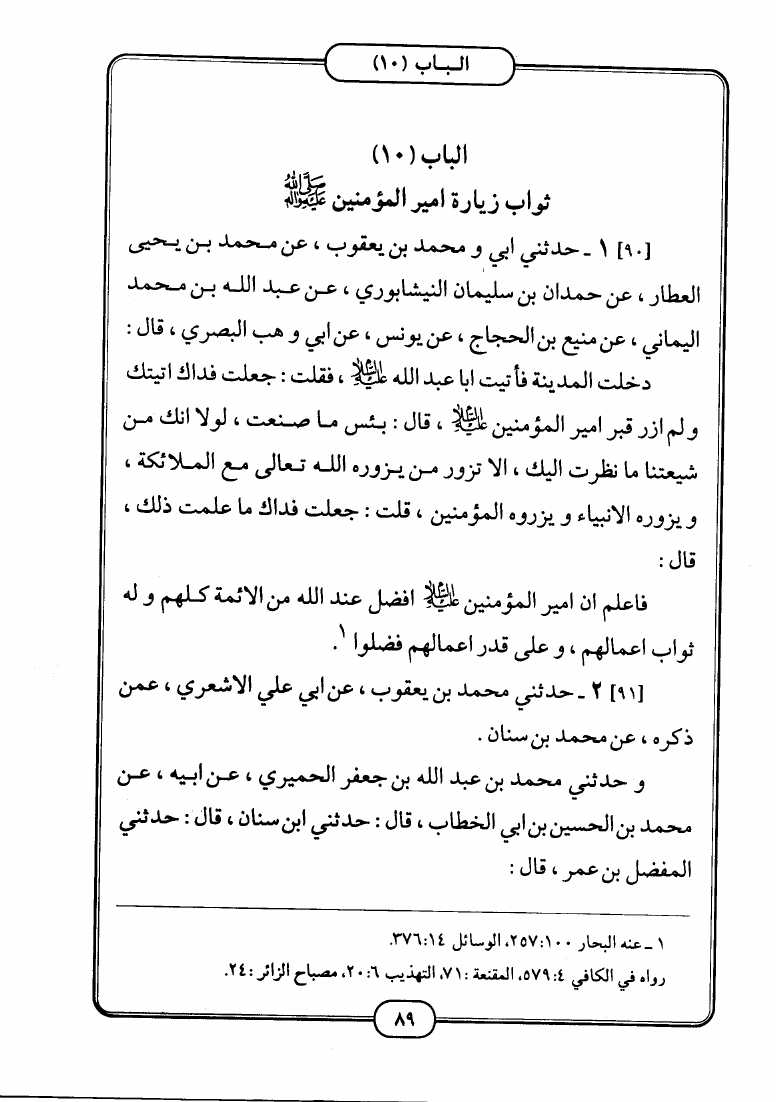 البـاب (١٠)
الباب (١٠)
ثواب زيارة امير المؤمنين ﷺ
[٩٠] ١ ـ حدثني ابي و محمد بن يعقوب ، عن محمد بن يحيى
العطار ، عن حمدان بن سليمان النيشابوري ، عن عبد الله بن محمد
اليماني ، عن منيع بن الحجاج ، عن يونس ، عن ابي و هب البصري ، قال :
دخلت المدينة فأتيت ابا عبد الله عليه السلام ، فقلت : جعلت فداك اتيتك
و لم ازر قبر امير المؤمنين عليه السلام ، قال : بئس ما صنعت ، لولا انك من
شيعتنا ما نظرت اليك ، الا تزور من يزوره الله تعالى مع الملائكة ،
و يزوره الانبياء و يزروه المؤمنين ، قلت : جعلت فداك ما علمت ذلك ،
قال :
فاعلم ان امير المؤمنين عليه السلام افضل عند الله من الائمة كلهم و له
ثواب اعمالهم ، و على قدر اعمالهم فضلوا ١.
[٩١] ٢ ـ حدثني محمد بن يعقوب ، عن ابي علي الاشعري ، عمن
ذكره ، عن محمد بن سنان .
و حدثني محمد بن عبد الله بن جعفر الحميري ، عن ابيه ، عن
محمد بن الحسين بن ابي الخطاب ، قال : حدثني ابن سنان ، قال : حدثني
المفضل بن عمر ، قال :
١ ـ عنه البحار ١٠٠:٢٥٧، الوسائل ١٤:٣٧٦.
رواه في الكافي ٤:٥٧٩، المقنعة :٧١، التهذيب ٦:٢٠، مصباح الزائر :٢٤.
٨٩